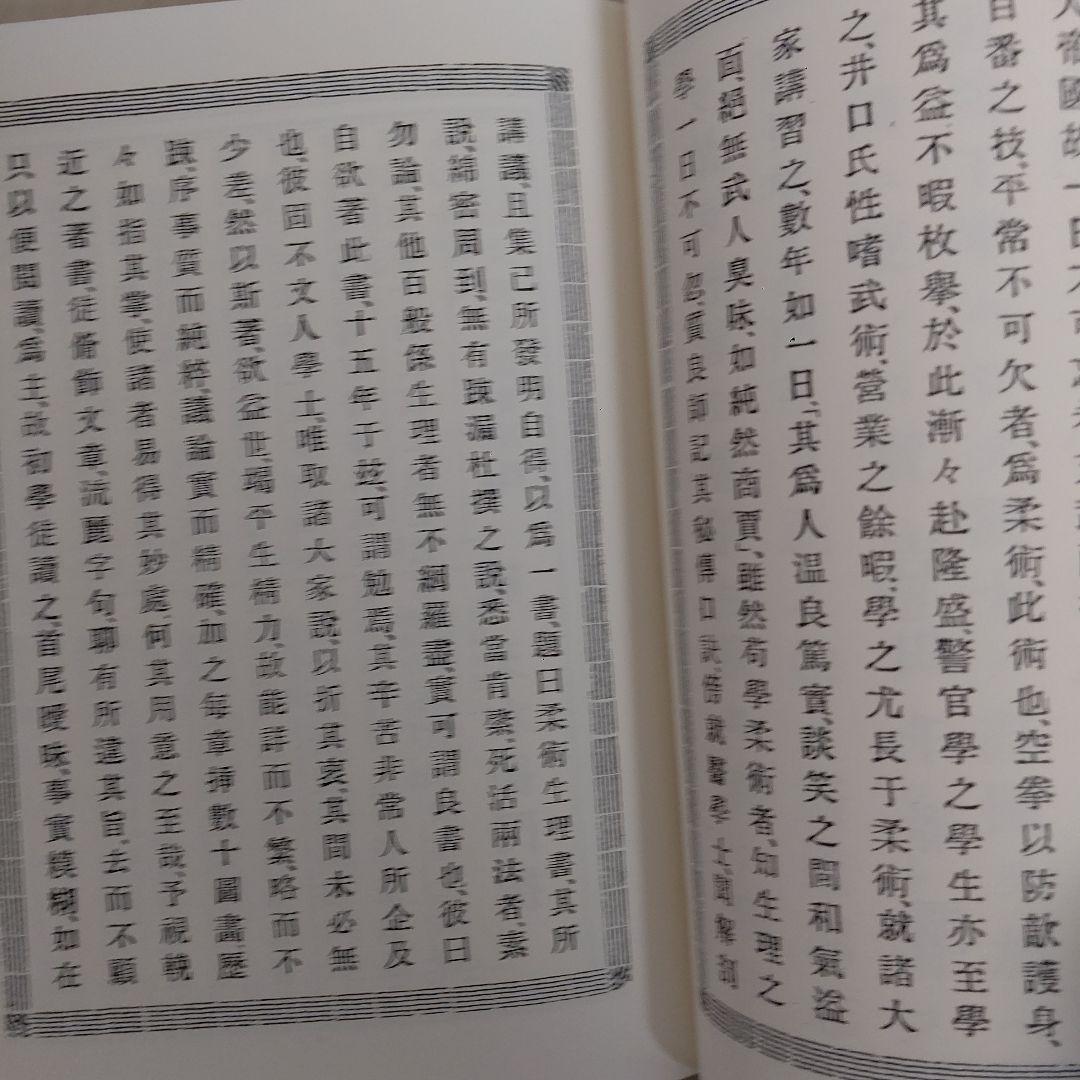 帝國故一日不可
日番之技、平常不可欠者、爲柔術、此術也、空拳以防敵護身、
其爲益不暇枚擧、於此漸々赴隆盛、警官學之學生亦至學
之、井口氏性嗜武術、營業之餘暇、學之尤長于柔術、就諸大
家講習之、數年如一日、「其爲人温良篤實、談笑之間和氣溢
面、絕無武人臭味、如純然商賈」、雖然苟學柔術者、知生理之
學一日不可忽、質良師記其秘傳口訣、傍就醫學士、聞解剖
講議、且集已所發明自得、以爲一書、題曰柔術生理書、其所
說、綿密周到、無有踈漏杜撰之說、悉當肯綮、死活兩法者、素
勿論、其他百般係生理者無不網羅盡、實可謂良書也、彼曰
自欲著此書、十五年于玆、可謂勉焉、其辛苦非常人所企及
也、彼固不文人學士、唯取諸大家說、以折其衷、其間未必無
少差、然以斯著、欲益世、竭平生精力、故能詳而不繁、略而不
踈、序事質而純粹、議論實而精確、加之每章揷數十圖畫、歷
々如指其掌、使諸者易得其妙處、何其用意之至哉、予視輓
近之著書、徒脩飾文章、流麗字句、聊有所違其旨、去而不顧
只以便閱讀、爲主、故初學徒讀之、首尾曖昧、事實模糊、如在